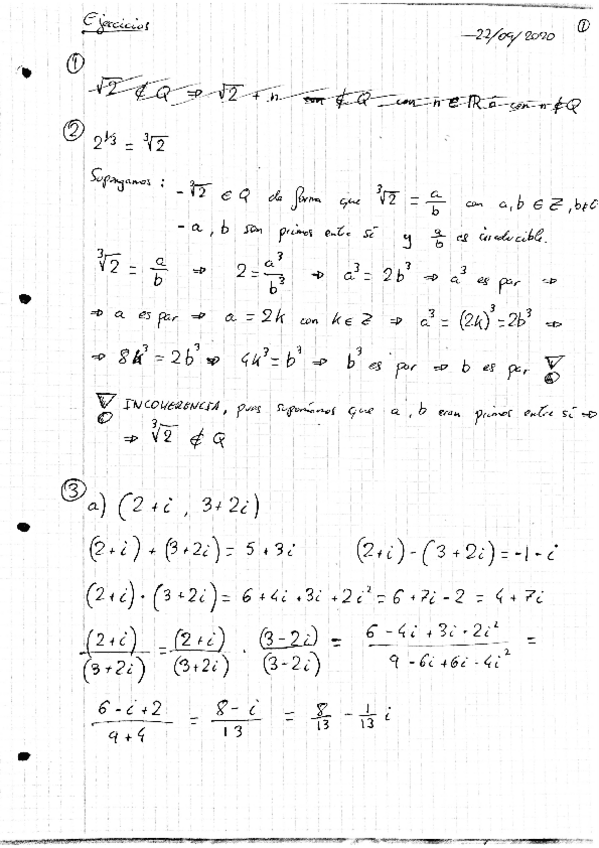 Ejercicios
-22/09/2020 ①
①
√2 ∉ Q ⇒ √2 + n ∉ Q con n ∈ R ó con n ∉ Q
②
2^1/3 = ∛2
Supongamos: -∛2 ∈ Q de forma que ∛2 = a/b con a, b ∈ Z, b≠0
- a, b son primos entre sí y a/b es irreducible.
∛2 = a/b ⇒ 2 = a³/b³ ⇒ a³ = 2b³ ⇒ a³ es par ⇒
⇒ a es par ⇒ a = 2k con k ∈ Z ⇒ a³ = (2k)³ = 2b³ ⇒
⇒ 8k³ = 2b³ ⇒ 4k³ = b³ ⇒ b³ es par ⇒ b es par
INCOHERENCIA, pues suponíamos que a, b eran primos entre sí ⇒
⇒ ∛2 ∉ Q
③
a) (2+i, 3+2i)
(2+i) + (3+2i) = 5+3i (2+i) - (3+2i) = -1-i
(2+i) · (3+2i) = 6+4i+3i+2i² = 6+7i-2 = 4+7i
(2+i)/(3+2i) = (2+i)/(3+2i) · (3-2i)/(3-2i) = (6-4i+3i-2i²)/(9-6i+6i-4i²) =
(6-i+2)/(9+4) = (8-i)/13 = 8/13 - 1/13 i